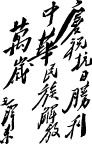 庆祝抗日勝利
中华民族解放
萬歲
毛泽东